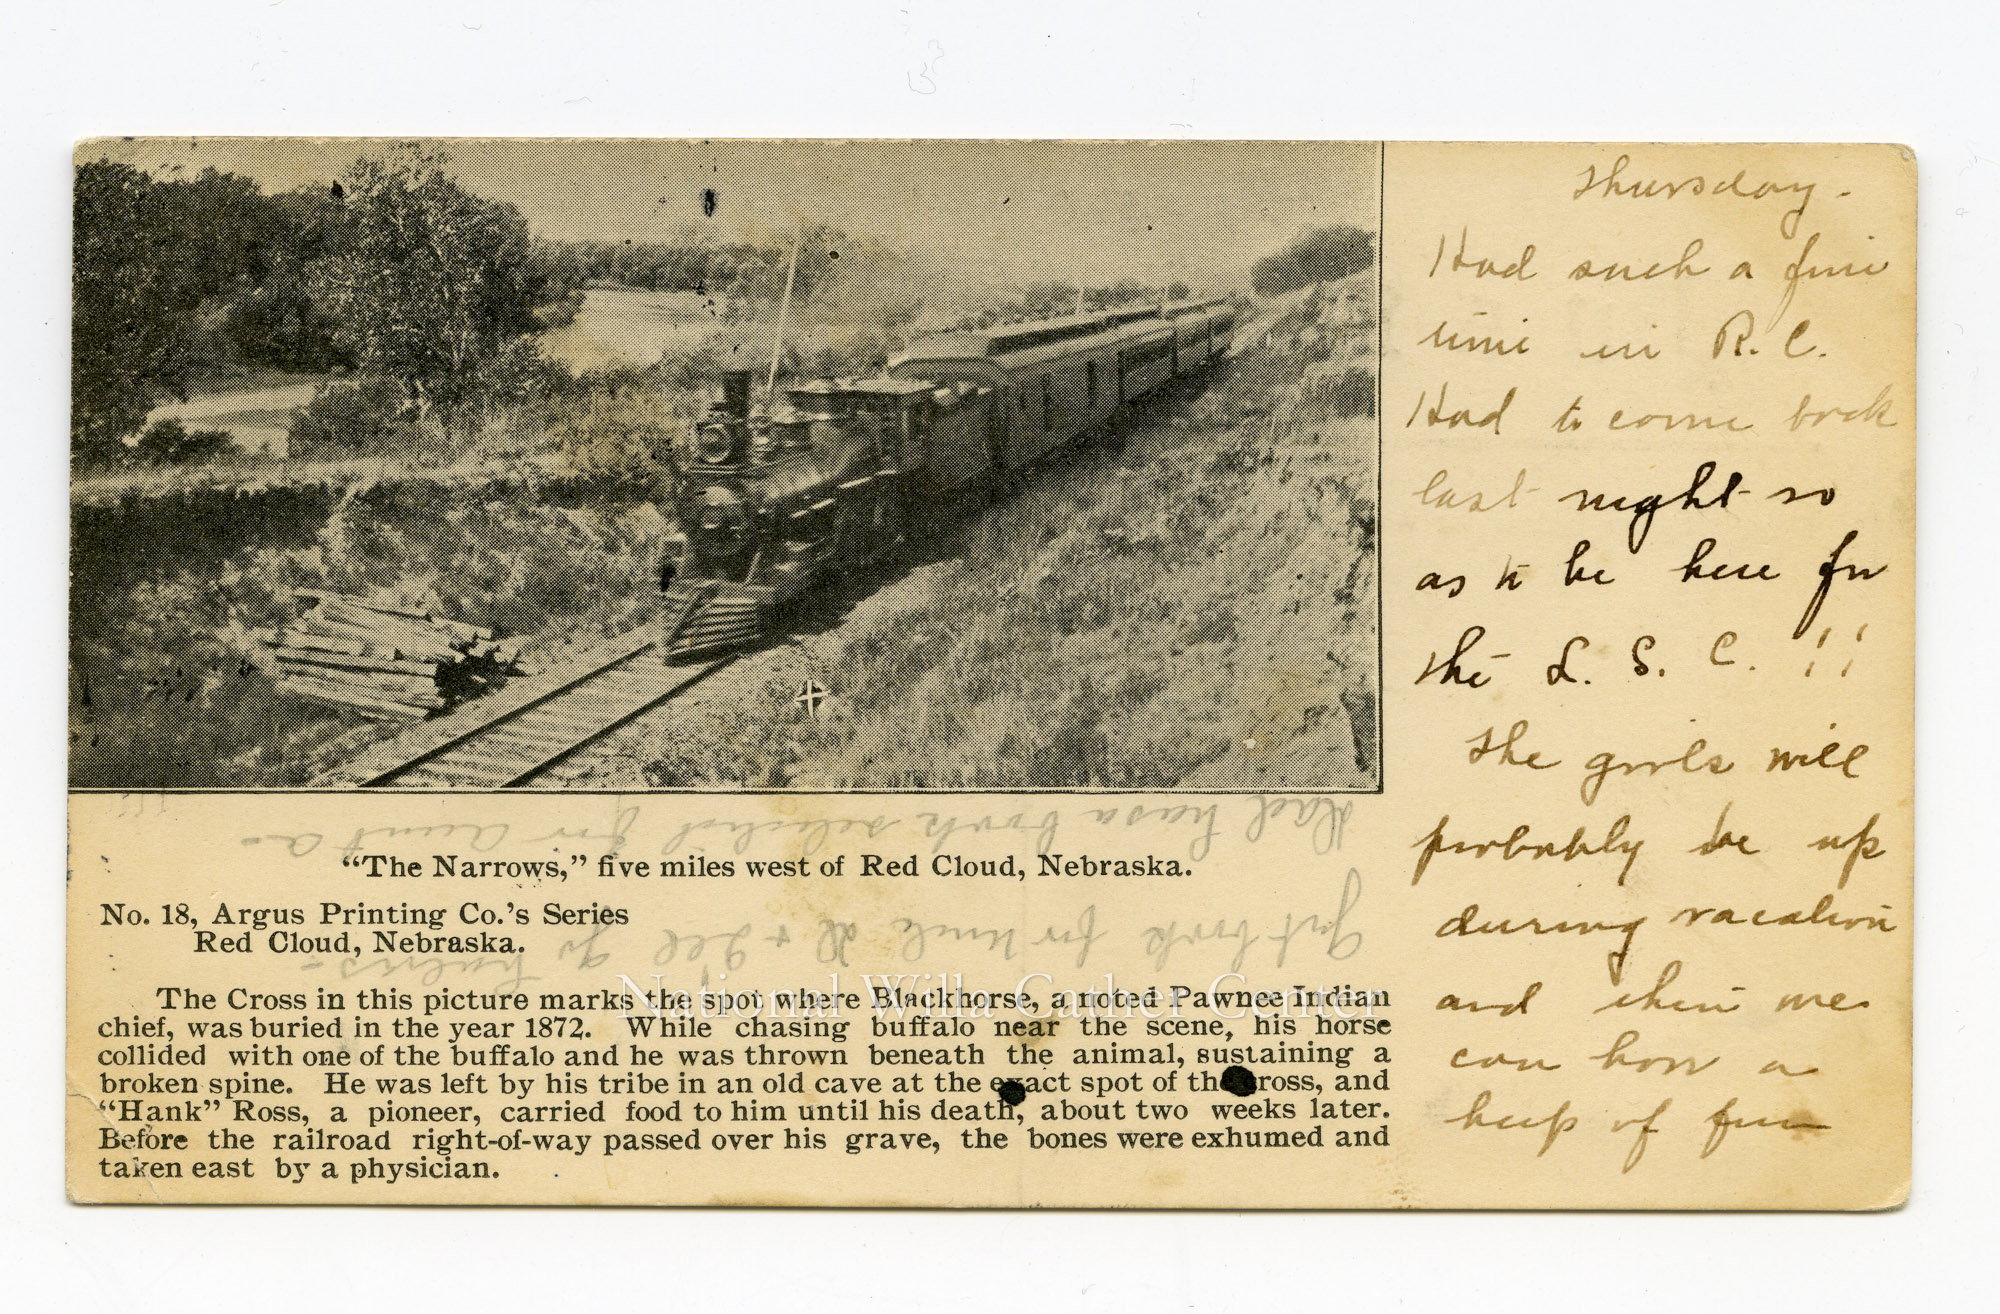 "The Narrows," five miles west of Red Cloud, Nebraska.
No. 18, Argus Printing Co.'s Series
Red Cloud, Nebraska.
The Cross in this picture marks the spot where Blackhorse, a noted Pawnee Indian
chief, was buried in the year 1872. While chasing buffalo near the scene, his horse
collided with one of the buffalo and he was thrown beneath the animal, sustaining a
broken spine. He was left by his tribe in an old cave at the exact spot of the cross, and
"Hank" Ross, a pioneer, carried food to him until his death, about two weeks later.
Before the railroad right-of-way passed over his grave, the bones were exhumed and
taken east by a physician.
National Willa Cather Center
Thursday -
Had such a fine
time in R. C.
Had to come back
last night so
as to be here for
the L. S. C. !!
The girls will
probably be up
during vacation
and then we
can have a
heap of fun
book for Uncle
book selected for Aunt